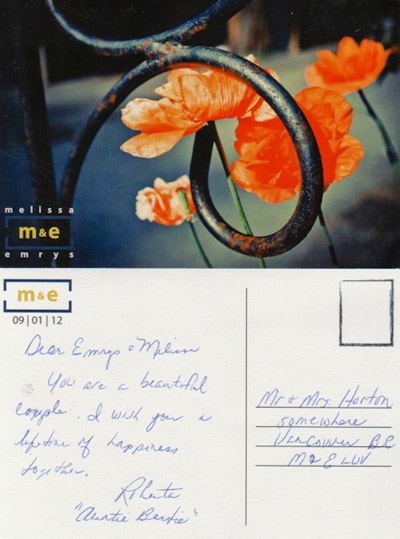 melissa
m&e
emrys
m&e
09|01|12
Dear Emrys & Melissa
You are a beautiful
couple. I wish you a
lifetime of happiness
together.
Roberta
"Auntie Bertie"
Mr & Mrs. Horton
somewhere
Vancouver BC
M2E LUV